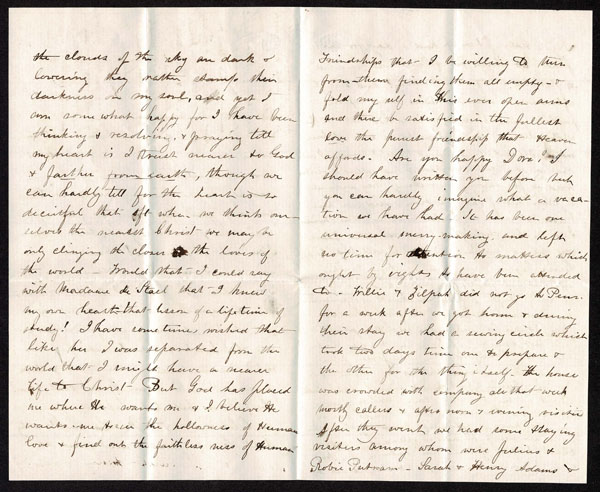 the clouds of the sky are dark &
lowering they rather stamp their
darkness on my soul, and yet I
am somewhat happy for I have been
thinking & resolving, & praying till
my heart is I trust nearer to God
& farther from earth, though we
can hardly tell for the heart is so
deceitful that oft when we think our-
selves the nearest Christ we may be
only clinging the closer to the loves of
the world - Would that I could say
with Madame de Stael that I knew
my own heart. that lesson of a life time of
study! I have sometimes wished that
like her I was separated from the
world that I might have a nearer
life to Christ - But God has placed
me where He wants me & I believe He
wants me to see the hollowness of Human
love & find out the faithless ness of Human
Friendships that I be willing to turn
from them finding them all empty - &
fold my self in His ever open arms
and there be satisfied in the fullest
love the purest friendship that Heaven
affords. Are you happy Dora? I
should have written you before but
you can hardly imagine what a vaca-
tion we have had. It has been one
universal merry-making, and left
no time for attention to matters which
ought by rights to have been attended
to - & did not go to
for a week after we got home & during
their stay we had a sewing circle which
took two days time one to prepare &
the other for the thing itself. The house
was crowded with company all that week
mostly callers & afternoon & evening visitors
After they went we had some staying
visitors among whom were Julius &
Putnam - Sarah & Henry Adams &